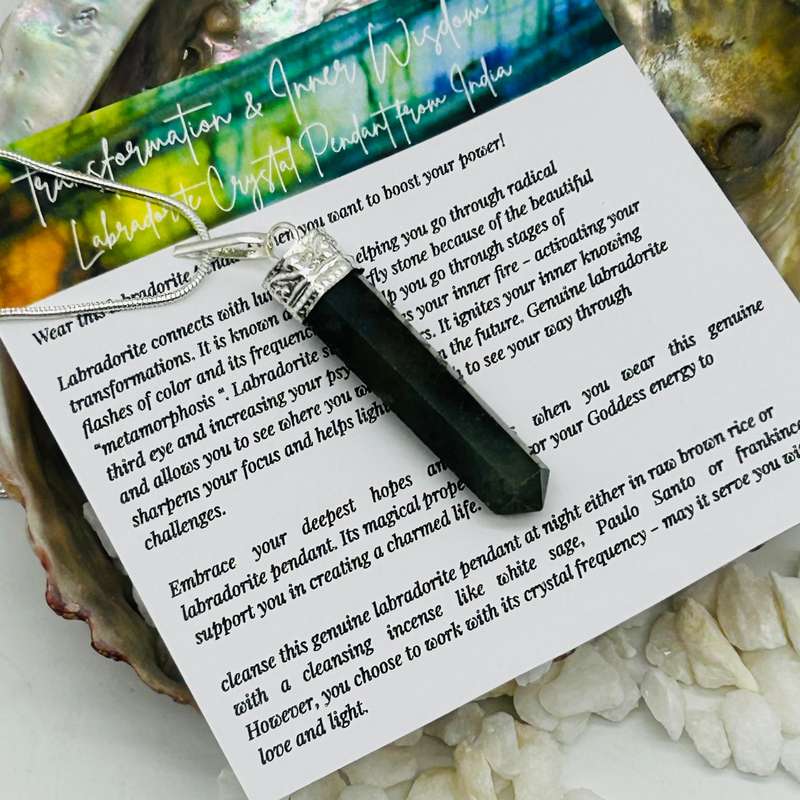 Transformation & Inner Wisdom
Labradorite Crystal Pendant from India
Wear this labradorite you want to boost your power!
Labradorite connects with helping you go through radical
transformations. It is known stone because of the beautiful
flashes of color and its you go through stages of
"metamorphosis ". Labradorite your inner fire – activating your
third eye and increasing your It ignites your inner knowing
and allows you to see where you the future. Genuine labradorite
sharpens your focus and helps to see your way through
challenges.
Embrace your deepest hopes when you wear this genuine
labradorite pendant. Its magical your Goddess energy to
support you in creating a charmed life.
cleanse this genuine labradorite pendant at night either in raw brown rice or
with a cleansing incense like white sage, Paulo Santo or
However, you choose to work with its crystal frequency – may it serve you
love and light.